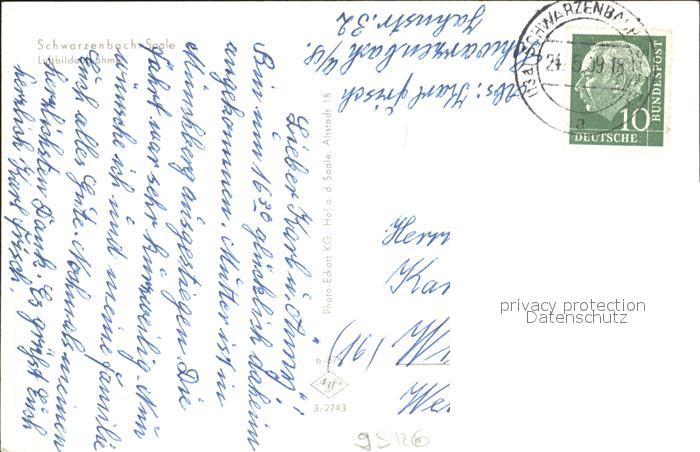 Schwarzenbach Saale
Luftbildaufnahme
Lieber Karl u. Anny!
Bin um 16³⁰ glücklich daheim
angekommen. Mutter ist in
Münchberg ausgestiegen. Die
Fahrt war sehr kurzweilig. Nun
wünsche ich und meine Familie
Euch alles Gute. Nochmals meinen
herzlichsten Dank. Es grüßt Euch
herzlich Karl Frisch.
Photo-Eckart KG. Hof a d Saale, Altstadt 18
3/2743
Abs: Karl Frisch
Schwarzenbach a/S.
Jahnstr. 32
SCHWARZENBACH
(SAALE)
24.5.59.18
a
10
DEUTSCHE
BUNDESPOST
Herrn
Ka
We
privacy protection
Datenschutz
95126